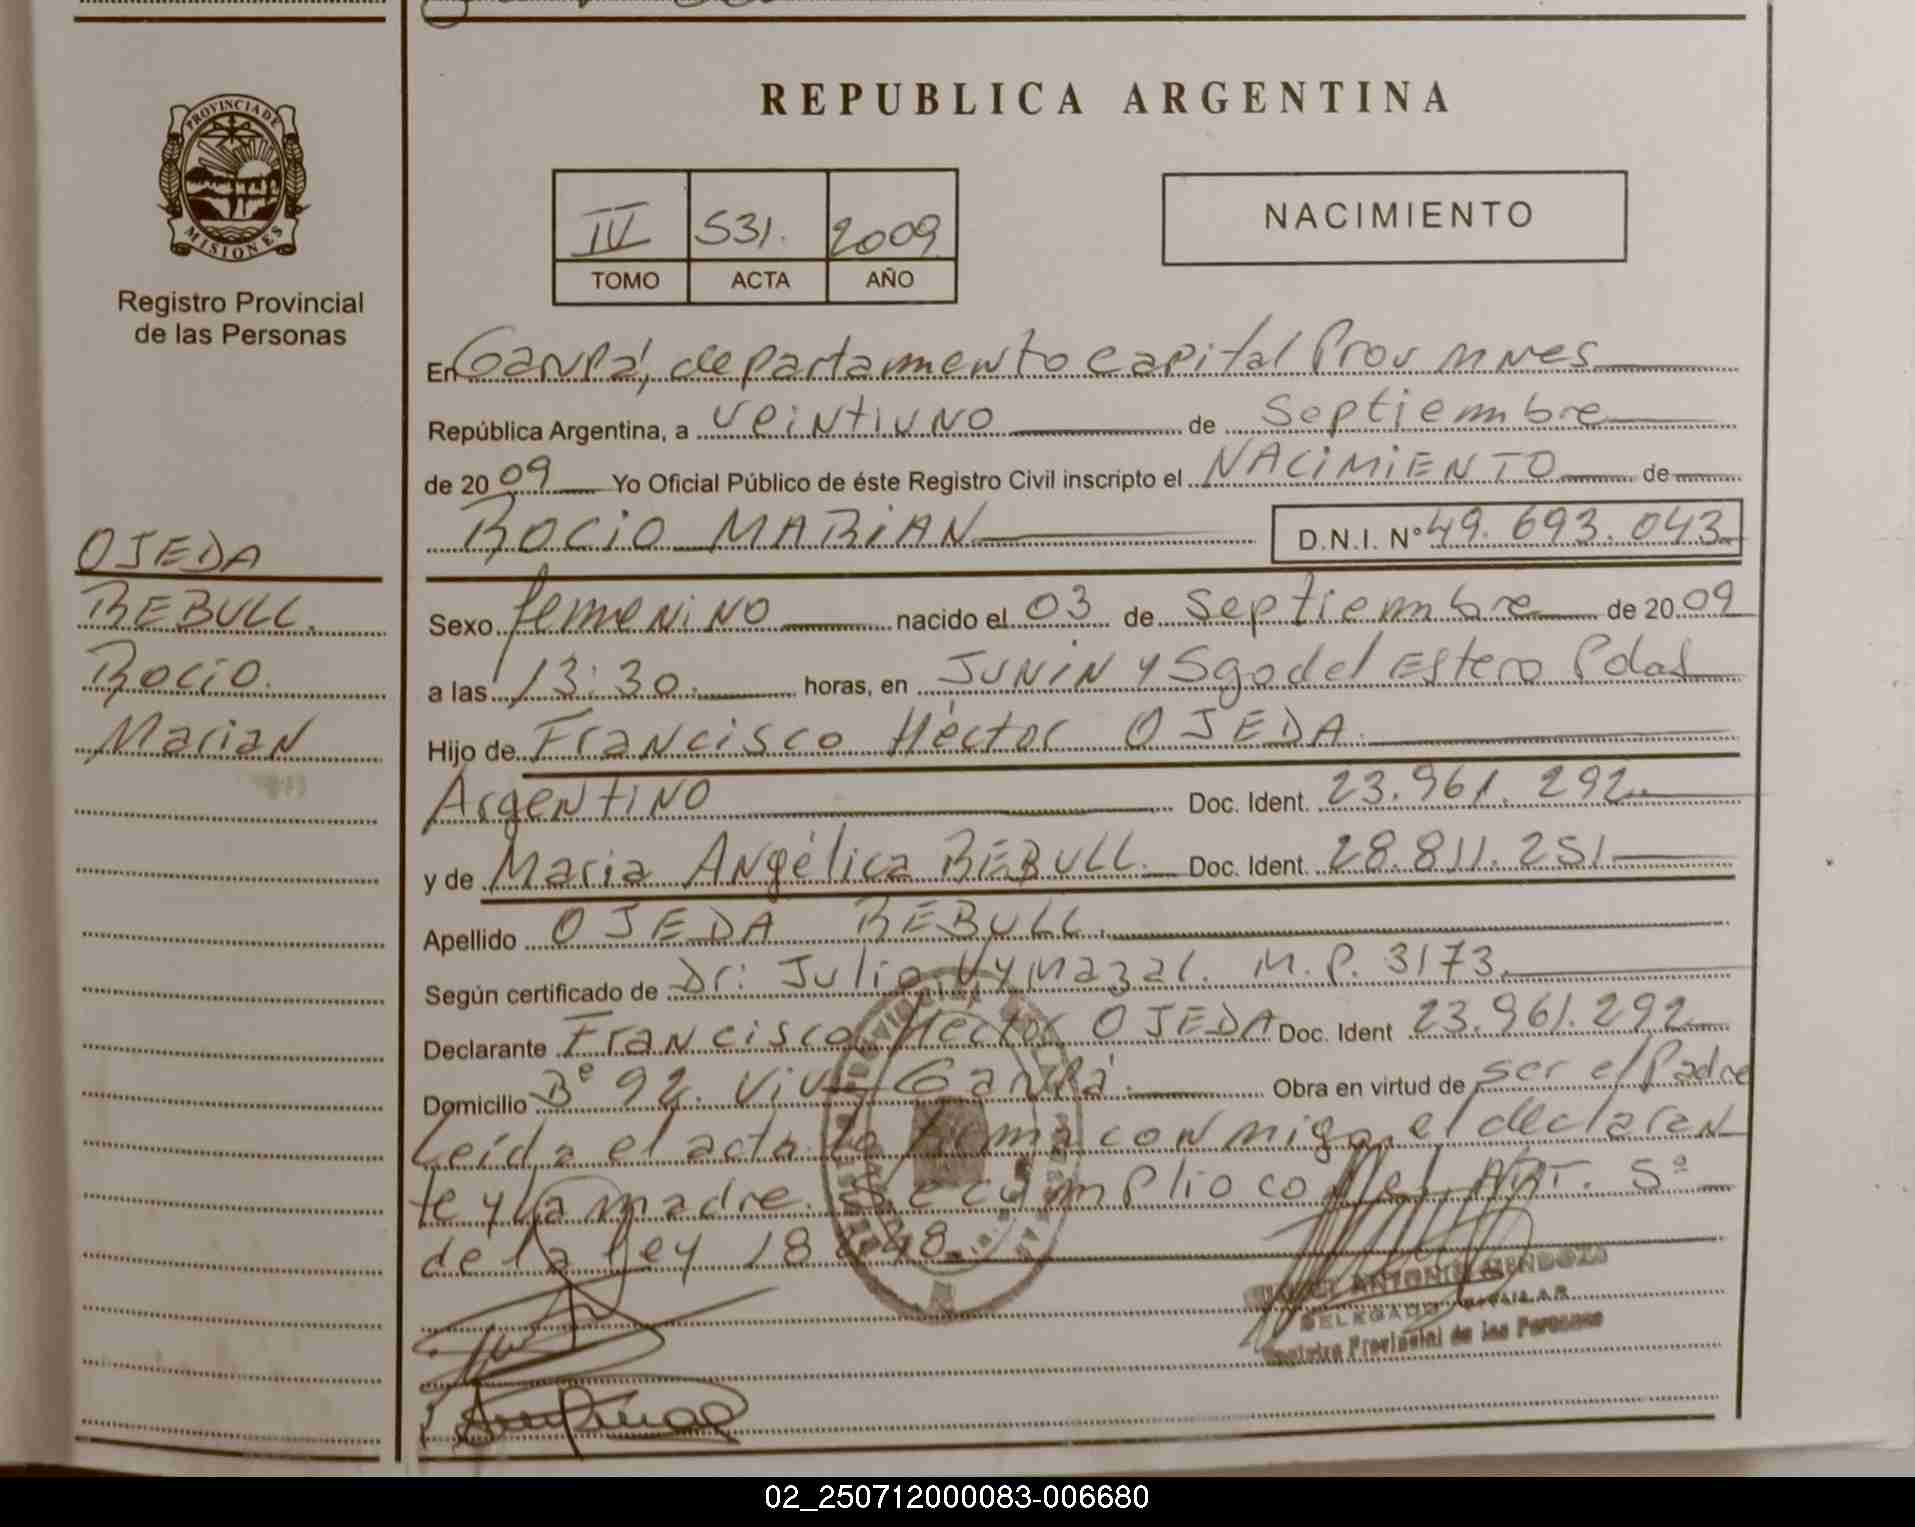 REPUBLICA ARGENTINA
PROVINCIA DE
MISIONES
Registro Provincial
de las Personas
IV 531. 2009
TOMO ACTA AÑO
NACIMIENTO
En Garupá, departamento capital Prov Mnes
República Argentina, a veintiuno de Septiembre
de 2009 Yo Oficial Público de éste Registro Civil inscripto el NACIMIENTO de
ROCIO MARIAN D.N.I. N° 49.693.043
OJEDA
REBULL.
Rocio.
Marian
Sexo femenino nacido el 03 de Septiembre de 2009
a las 13:30. horas, en JUNIN y Sgo del Estero Pdas
Hijo de Francisco Héctor OJEDA.
Argentino Doc. Ident. 23.961.292.
y de Maria Angélica REBULL. Doc. Ident. 28.811.251
Apellido OJEDA REBULL.
Según certificado de Dr: Julio Vymazal. M.P. 3173.
Declarante Francisco Hector OJEDA Doc. Ident 23.961.292
Domicilio B° 92. Viv Garupá. Obra en virtud de ser el Padre
Leída el acta la firma conmigo el declaran
te y la madre. Se cumplio con el ART. 5º
de la ley 18248.
ANTONIO MENDOZA
DELEGADO TITULAR
Registro Provincial de las Personas
02_250712000083-006680